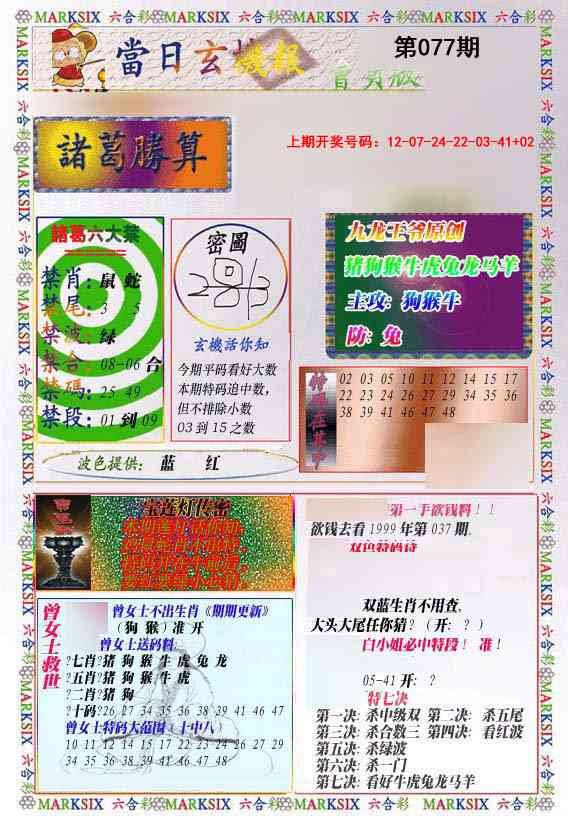 MARKSIX 六合彩 MARKSIX 六合彩 MARKSIX 六合彩 MARKSIX 六合彩
當日玄機报
第077期
上期开奖号码：12-07-24-22-03-41+02
諸葛勝算
諸葛六大禁
禁肖：鼠 蛇
禁尾：3 5
禁波：绿
禁合：08-06 合
禁碼：25 49
禁段：01 到 09
密圖
玄機活你知
今期平码看好大数
本期特码追中数，
但不排除小数
03 到 15 之数
九龙王爷原创
猪狗猴牛虎兔龙马羊
主攻：狗猴牛
防：兔
特码在其中
02 03 05 10 11 12 14 15 17
22 23 24 26 27 29 34 35 36
38 39 41 46 47 48
波色提供： 蓝 红
宝连灯传密
第一手欲钱料！！
欲钱去看 1999 年第 037 期.
双色特码诗
双蓝生肖不用查,
大头大尾任你猜？（开：？）
白小姐必中特段！ 准！
05-41 开：？
特七决
第一决：杀中级双 第二决： 杀五尾
第三决：杀合数三 第四决： 看红波
第五决：杀绿波
第六决：杀一门
第七决：看好牛虎兔龙马羊
曾女士救世
曾女士不出生肖《期期更新》
（狗 猴）准 开
曾女士送码料
?七肖?猪 狗 猴 牛 虎 兔 龙
?五肖?猪 狗 猴 牛 虎
?二肖?猪 狗
?十码?26 27 34 35 36 38 39 41 46 47
曾女士特码大范围（十中八）
10 11 12 14 15 17 22 23 24 26 27 29
34 35 36 38 39 41 46 47 48
MARKSIX 六合彩 MARKSIX 六合彩 MARKSIX 六合彩 MARKSIX 六合彩